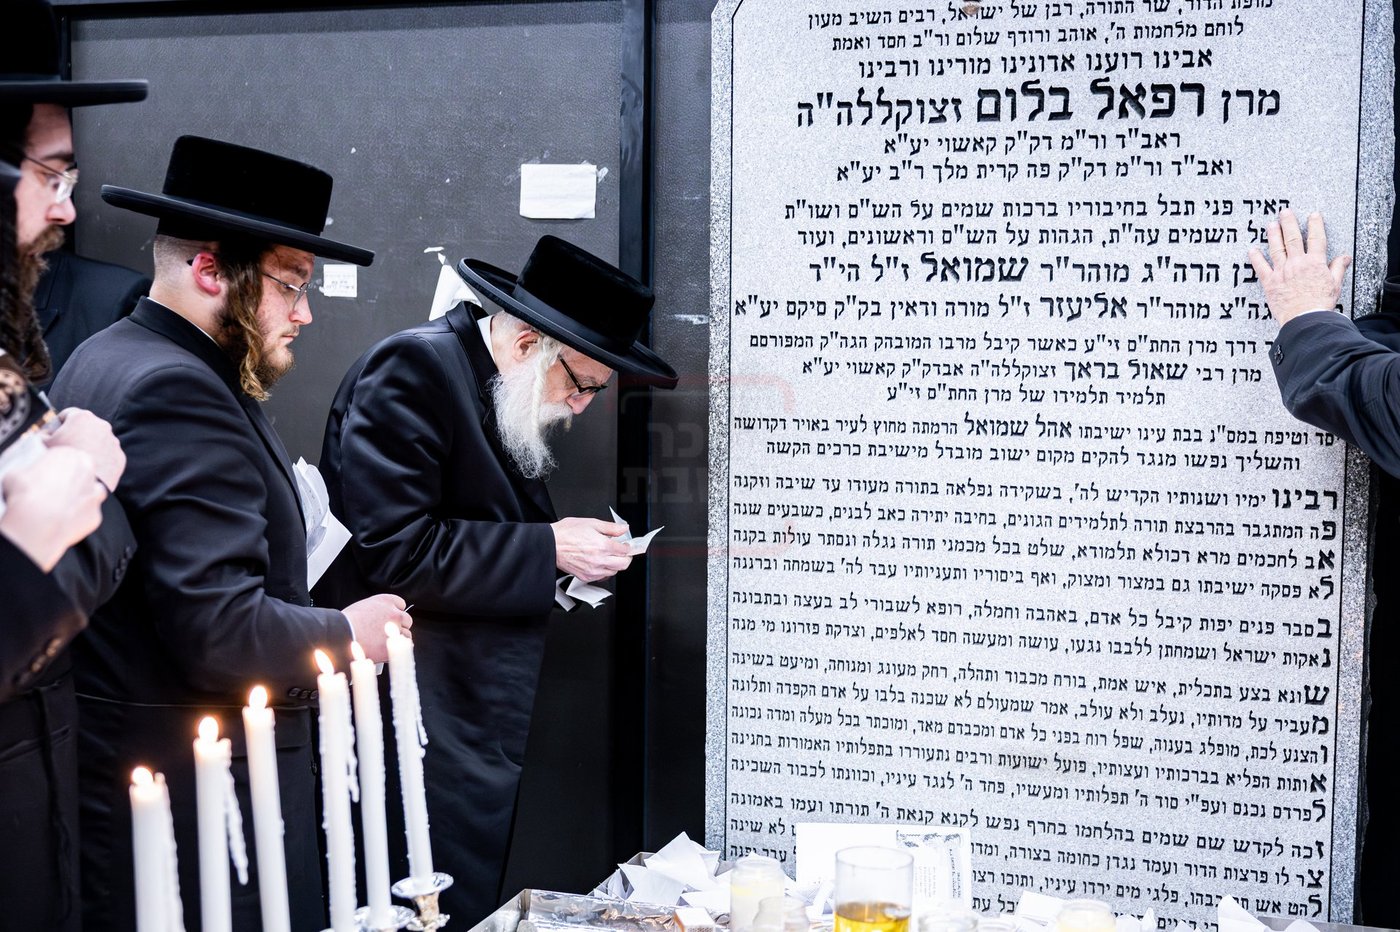 מופת הדור, שר התורה, רבן של ישראל, רבים השיב מעון
לוחם מלחמות ה', אוהב ורודף שלום ור"ב חסד ואמת
אבינו רוענו אדונינו מורינו ורבינו
מרן רפאל בלום זצוקללה"ה
ראב"ד ור"מ דק"ק קאשוי יע"א
ואב"ד ור"מ דק"ק פה קרית מלך ר"ב יע"א
האיר פני תבל בחיבוריו ברכות שמים על הש"ס ושו"ת
של השמים עה"ת, הגהות על הש"ס וראשונים, ועוד
בן הרה"ג מוהר"ר שמואל ז"ל הי"ד
גה"צ מוהר"ר אליעזר ז"ל מורה ודאין בק"ק סיקס יע"א
דרך מרן החת"ס זי"ע כאשר קיבל מרבו המובהק הגה"ק המפורסם
מרן רבי שאול בראך זצוקללה"ה אבדק"ק קאשוי יע"א
תלמיד תלמידו של מרן החת"ס זי"ע
יסד וטיפח במס"נ בבת עינו ישיבתו אהל שמואל הרמתה מחוץ לעיר באויר דקדושה
והשליך נפשו מנגד להקים מקום ישוב מובדל מישיבת כרכים הקשה
רבינו ימיו ושנותיו הקדיש לה', בשקידה נפלאה בתורה מעודו עד שיבה וזקנה
פה המתגבר בהרבצת תורה לתלמידים הגונים, בחיבה יתירה כאב לבנים, כשבעים שנה
אב לחכמים מרא דכולא תלמודא, שלט בכל מכמני תורה נגלה ונסתר עולות בקנה
לא פסקה ישיבתו גם במצור ומצוק, ואף ביסוריו ותעניותיו עבד לה' בשמחה וברננה
בסבר פנים יפות קיבל כל אדם, באהבה וחמלה, רופא לשבורי לב בעצה ובתבונה
נאקות ישראל ושמחתן ללבבו נגעו, עושה ומעשה חסד לאלפים, וצדקת פזרונו מי מנה
שונא בצע בתכלית, איש אמת, בורח מכבוד ותהלה, רחק מעונג ומנוחה, ומיעט בשינה
מעביר על מדותיו, נעלב ולא עולב, אמר שמעולם לא שכנה בלבו על אדם הקפדה ותלונה
והצנע לכת, מופלג בענוה, שפל רוח בפני כל אדם ומכבדם מאד, ומוכתר בכל מעלה ומדה נכונה
אותות הפליא בברכותיו ועצותיו, פועל ישועות ורבים נתעוררו בתפלותיו האמורות בחנינה
לפרדם נכנס ועפ"י סוד ה' תפלותיו ומעשיו, פחד ה' לנגד עיניו, וכוונתו לכבוד השכינה
זכה לקדש שם שמים בהלחמו בחרף נפש לקנא קנאת ה' תורתו ועמו באמונה
צר לו פרצות הדור ועמד נגדן כחומה בצורה, ומדו
לא שינה
להט אש
ובהו, פלגי מים ירדו עיניו, ותוכו רצו